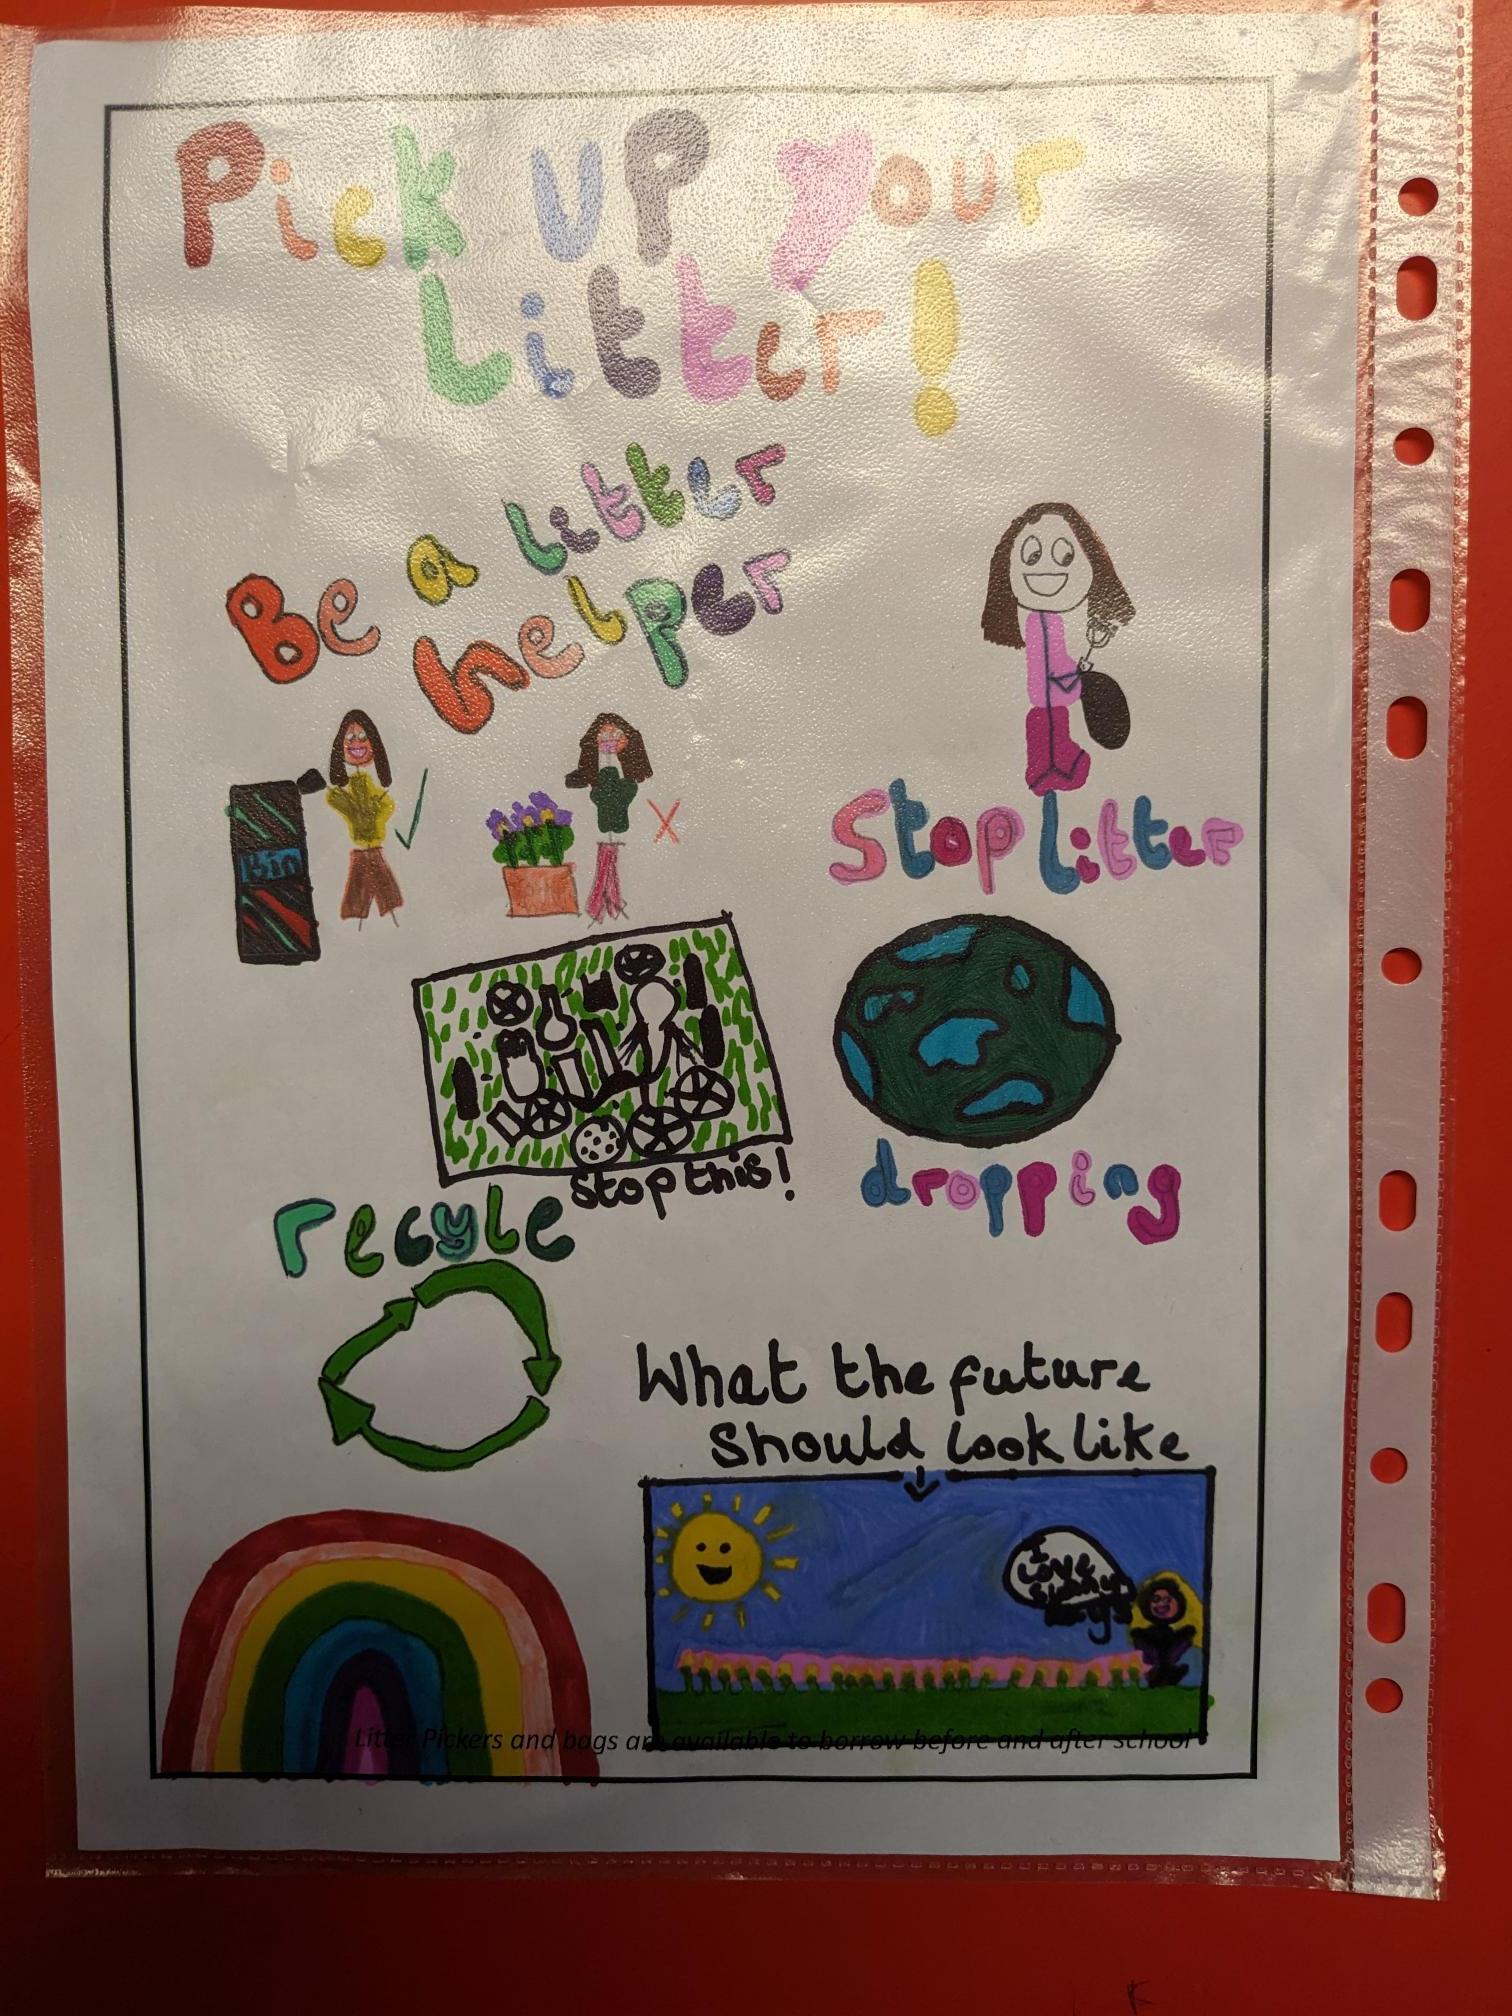 Pick up your
Litter!
Be a litter
helper
Bin
Stop litter
dropping
Stop this!
recyle
What the future
Should look like
I
Love
Litter Pickers and bags are available to borrow before and after school